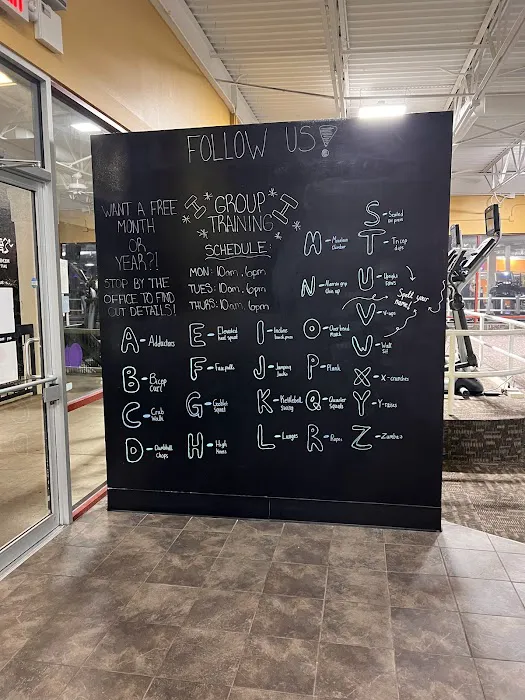 FOLLOW US!
WANT A FREE
MONTH
OR
YEAR?!
STOP BY THE
OFFICE TO FIND
OUT DETAILS!
GROUP
TRAINING
SCHEDULE:
MON: 10am, 6pm
TUES: 10am, 6pm
THURS: 10am, 6pm
A - Adductors
B - Bicep
curl
C - Crab
Walk
D - Dumbbell
Chops
E - Elevated
heel squat
F - Face pulls
G - Goblet
Squat
H - High
Knees
I - Incline
bench press
J - Jumping
Jacks
K - Kettlebell
swing
L - Lunges
M - Mountain
climber
N - Narrow grip
chin up
O - Overhead
P - Plank
Q - Quarter
Squats
R - Rows
S - Seated
T - Tricep
dips
U - Upright
Rows
V - V-ups
W - Wall
Sit
X - X-crunches
Y - Y-raises
Z - Zumba
Spell your
name!